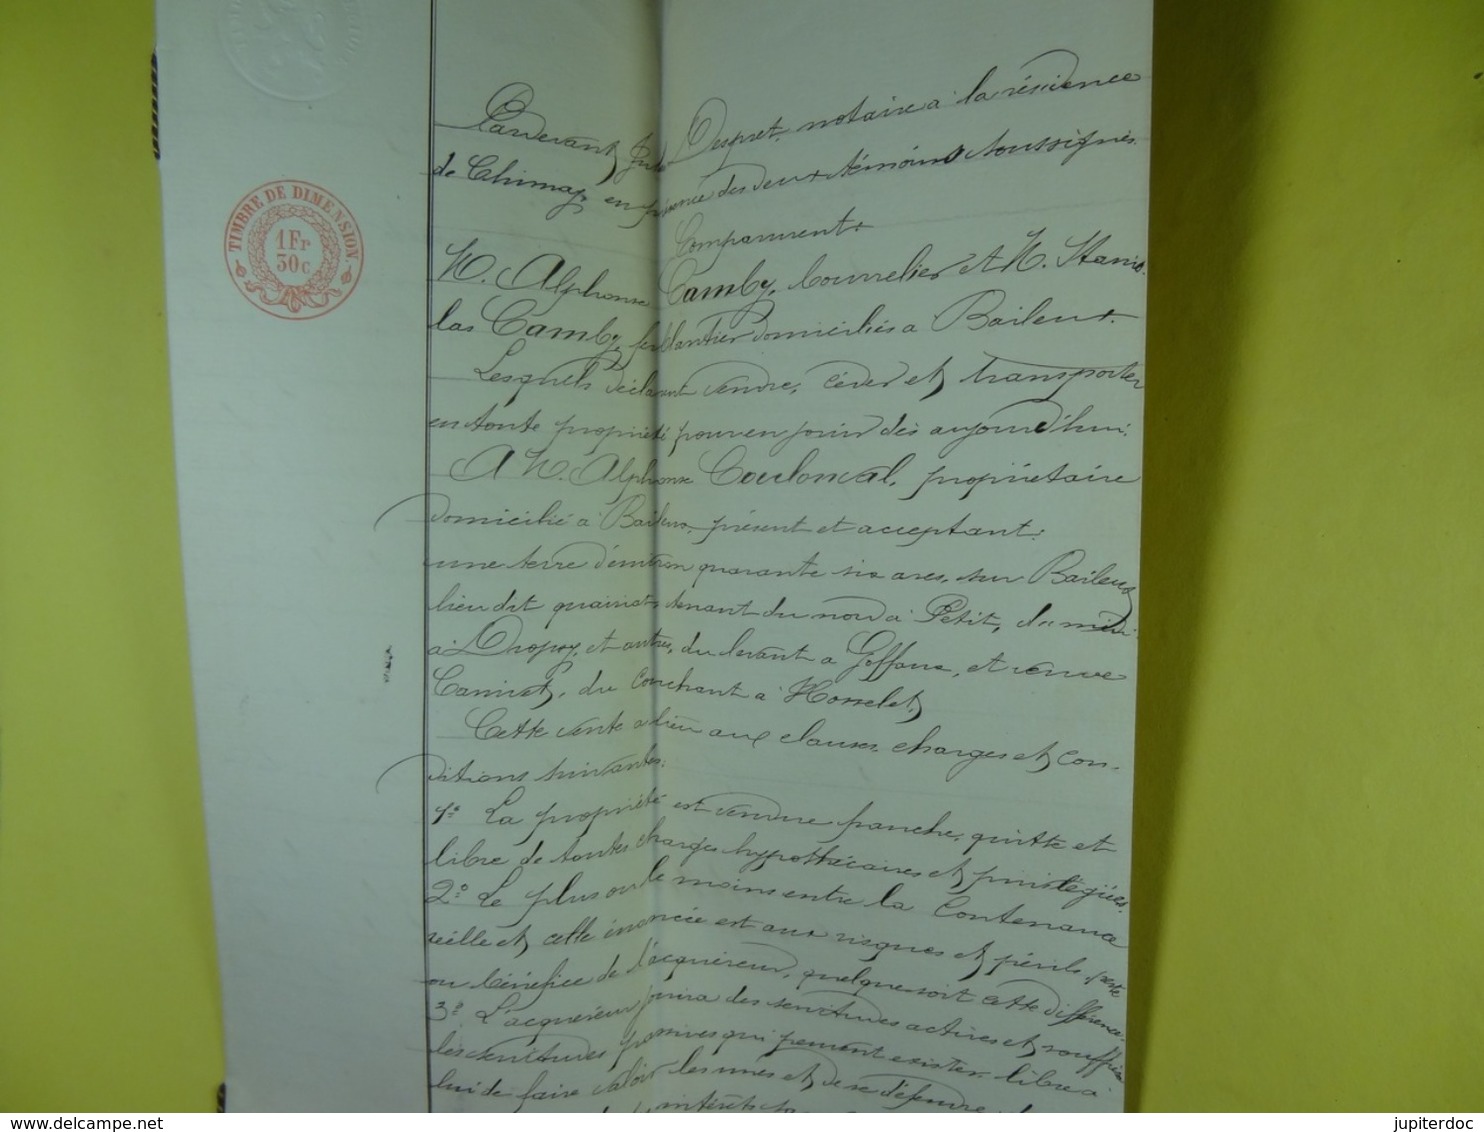 TIMBRE DE DIMENSION.
1 Fr
30 c
Pardevant Jules Despret, notaire à la résidence
de Chimay, en présence des deux témoins soussignés.
Comparurent
M. Alphonse Camby, bourrelier et M. Stanis-
las Camby, ferblantier domiciliés à Baileux.
Lesquels déclarent vendre, céder et transporter
en toute propriété pour en jouir dès aujourd'hui.
A M. Alphonse Coulonval, propriétaire
domicilié à Baileux, présent et acceptant:
une terre d'environ quarante six ares, sur Baileux
lieu dit tenant du nord à Petit, du midi
à Dropsy, et autres, du levant à Goffaux, et veuve
du couchant à Hosselet,
Cette vente a lieu aux clauses, charges et con-
ditions suivantes:
1° La propriété est vendue franche, quitte et
libre de toutes charges hypothécaires et privilégiées.
2° Le plus ou le moins entre la contenance
réelle et celle énoncée est aux risques et périls, perte
ou bénéfice de l'acquéreur, quelque soit cette différence.
3° L'acquéreur jouira des servitudes actives et souffrira
les servitudes passives qui peuvent exister, libre à
lui de faire valoir les unes et de se défendre
intérêts
jupiterdoc